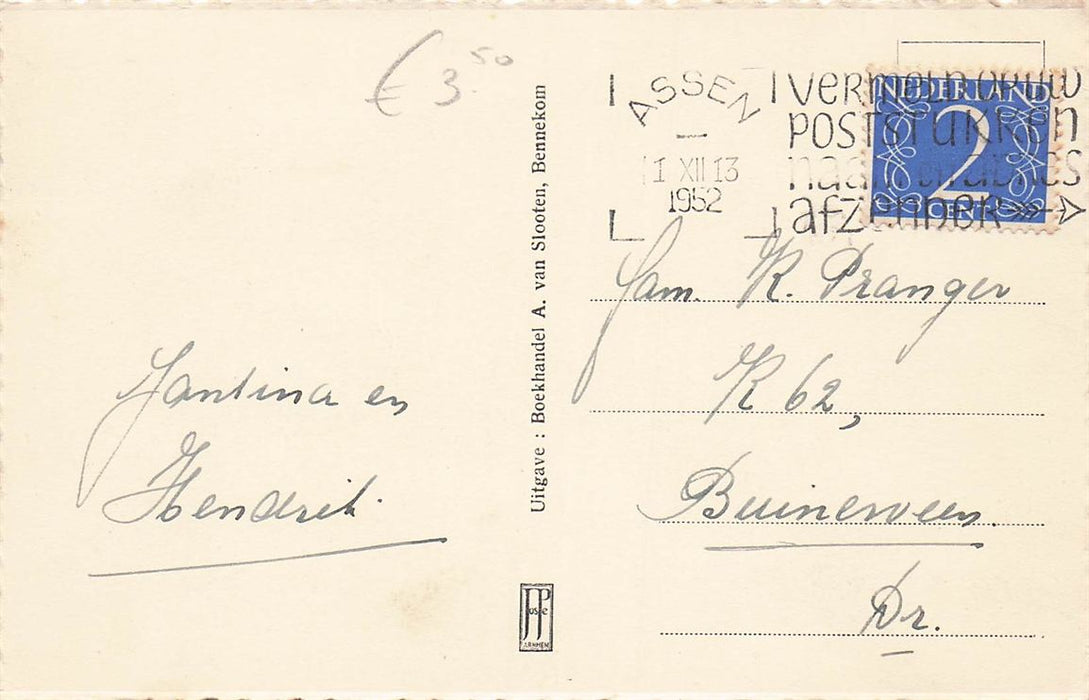 € 3.50
ASSEN
1 XII 13
1952
VERMELD OP UW
POSTSTUKKEN
naam en adres
afzender
NEDERLAND
2
CENT
Jantina en
Hendrik
Uitgave : Boekhandel A. van Slooten, Bennekom
JosPé
ARNHEM
Fam. K. Pranger
K 62,
Buinerveen.
Dr.